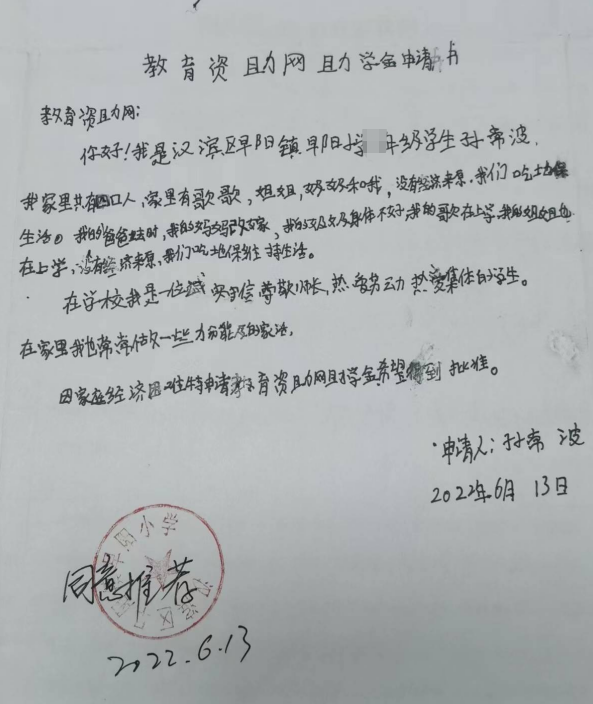 教育资助网助学金申请书
教育资助网:
你好!我是汉滨区早阳镇早阳小学 年级学生孙常波,
我家里共有四口人,家里有歌歌,姐姐,奶奶和我,没有经济来原,我们吃土地保
生活。我的爸爸去时,我的妈妈改家,我的奶奶身体不好我的歌在上学,我的姐姐也
在上学,没有经济来原,我们吃地保维持生活。
在学校我是一位诚实守信尊敬师长,热爱劳动热爱集体的学生。
在家里我也常常做一些力所能及的家活,
因家庭经济困难特申请教育资助网助学金希望得到批准。
申请人:孙常波
2022年6月13日
早阳小学
同意推荐
2022.6.13